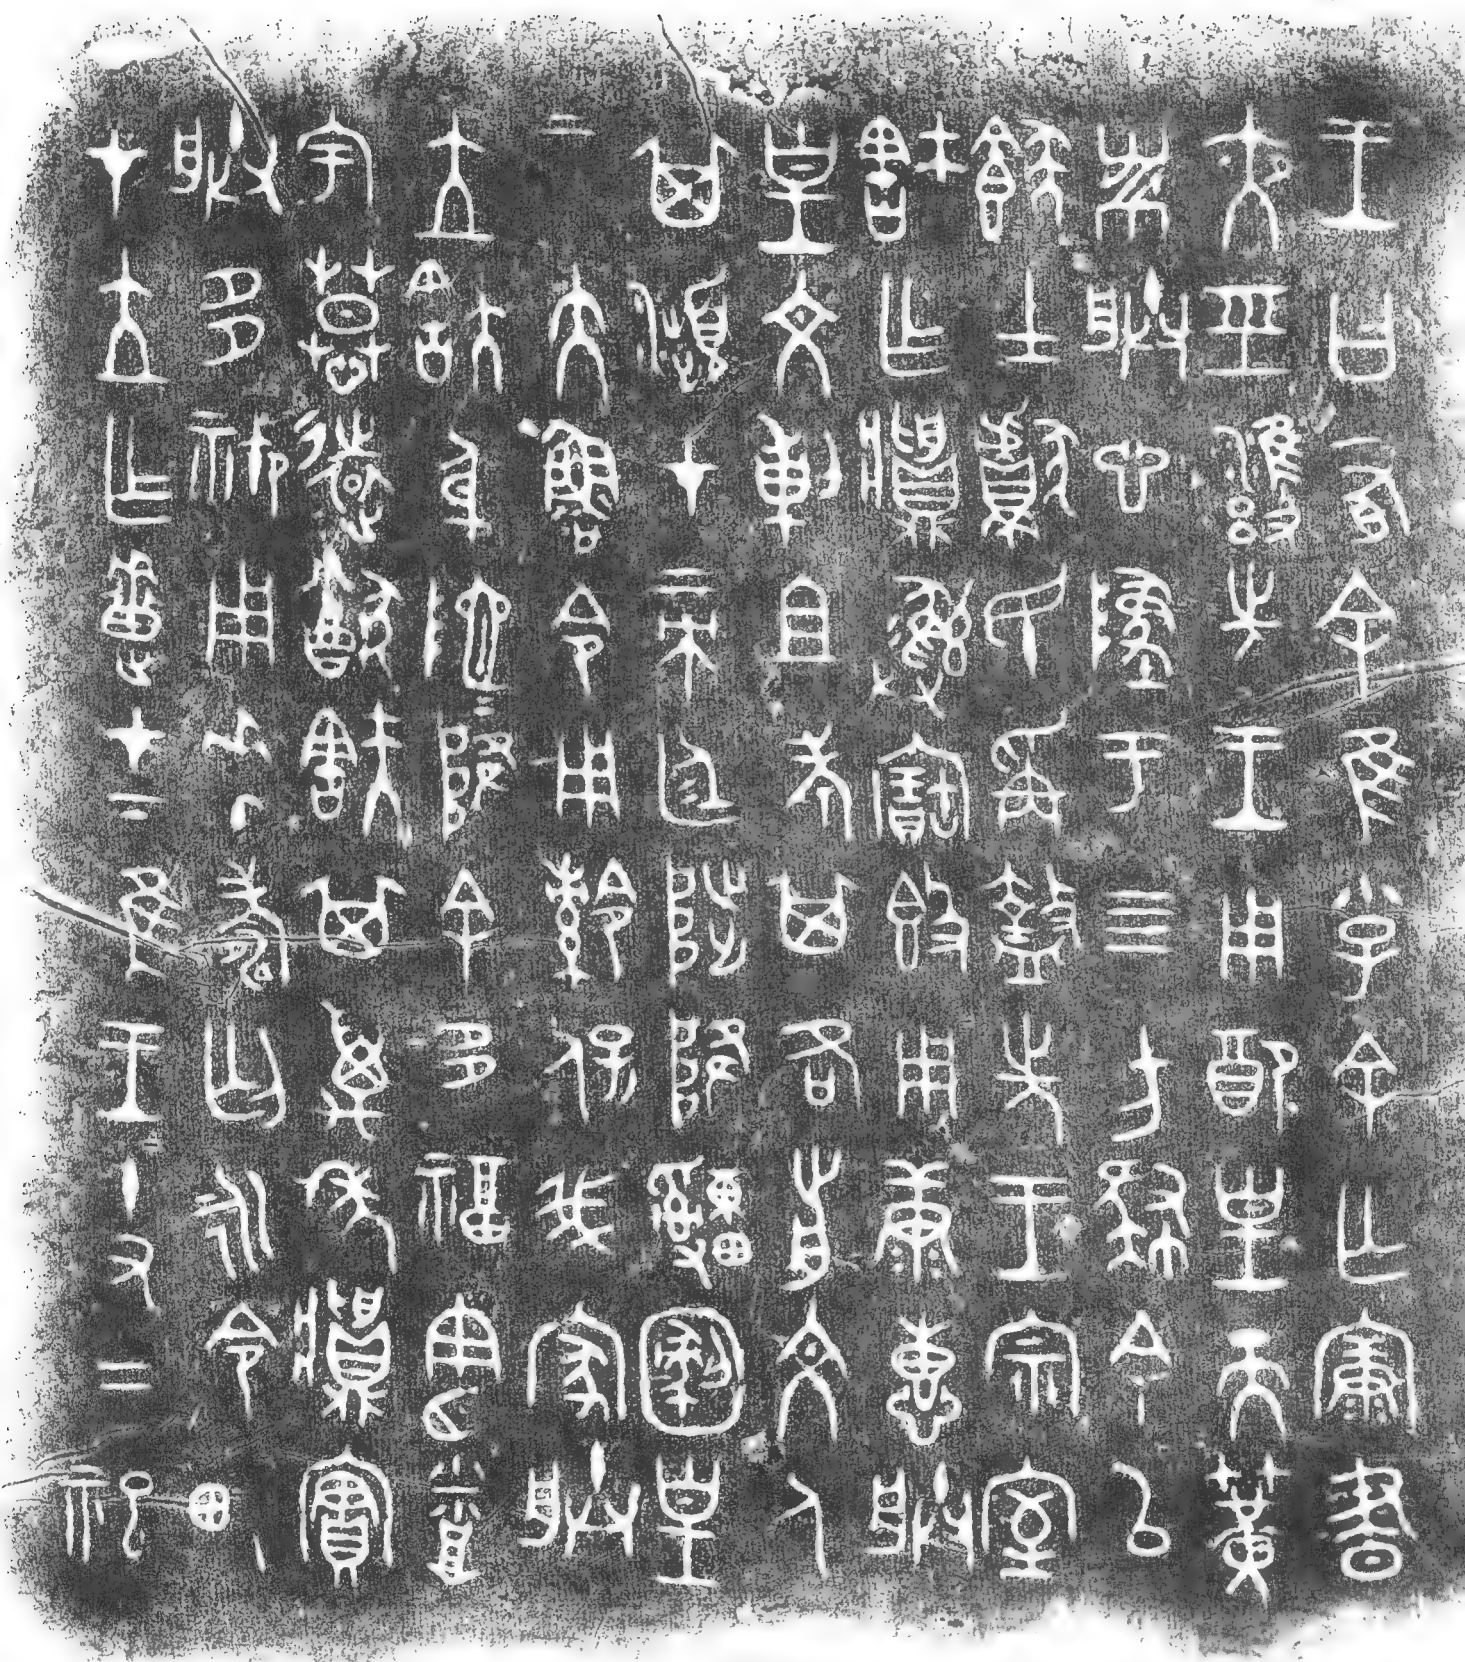 王曰有余隹小子余亡康晝
夜巠雝先王用配皇天簧
黹朕心墜于四方肆余以
士獻民爯盩先王宗室
㝬乍𩰫彝寶簋用康惠朕
皇文剌且考其各前文人
其瀕才帝廷陟降圂皇
帝大魯令用保我家朕
立㝬身阤=降余多福憲烝
宇慕遠猷㝬其萬年𩰫實
朕多禦用𠦪壽匄永令畯
才立乍疐才下隹王十又二祀